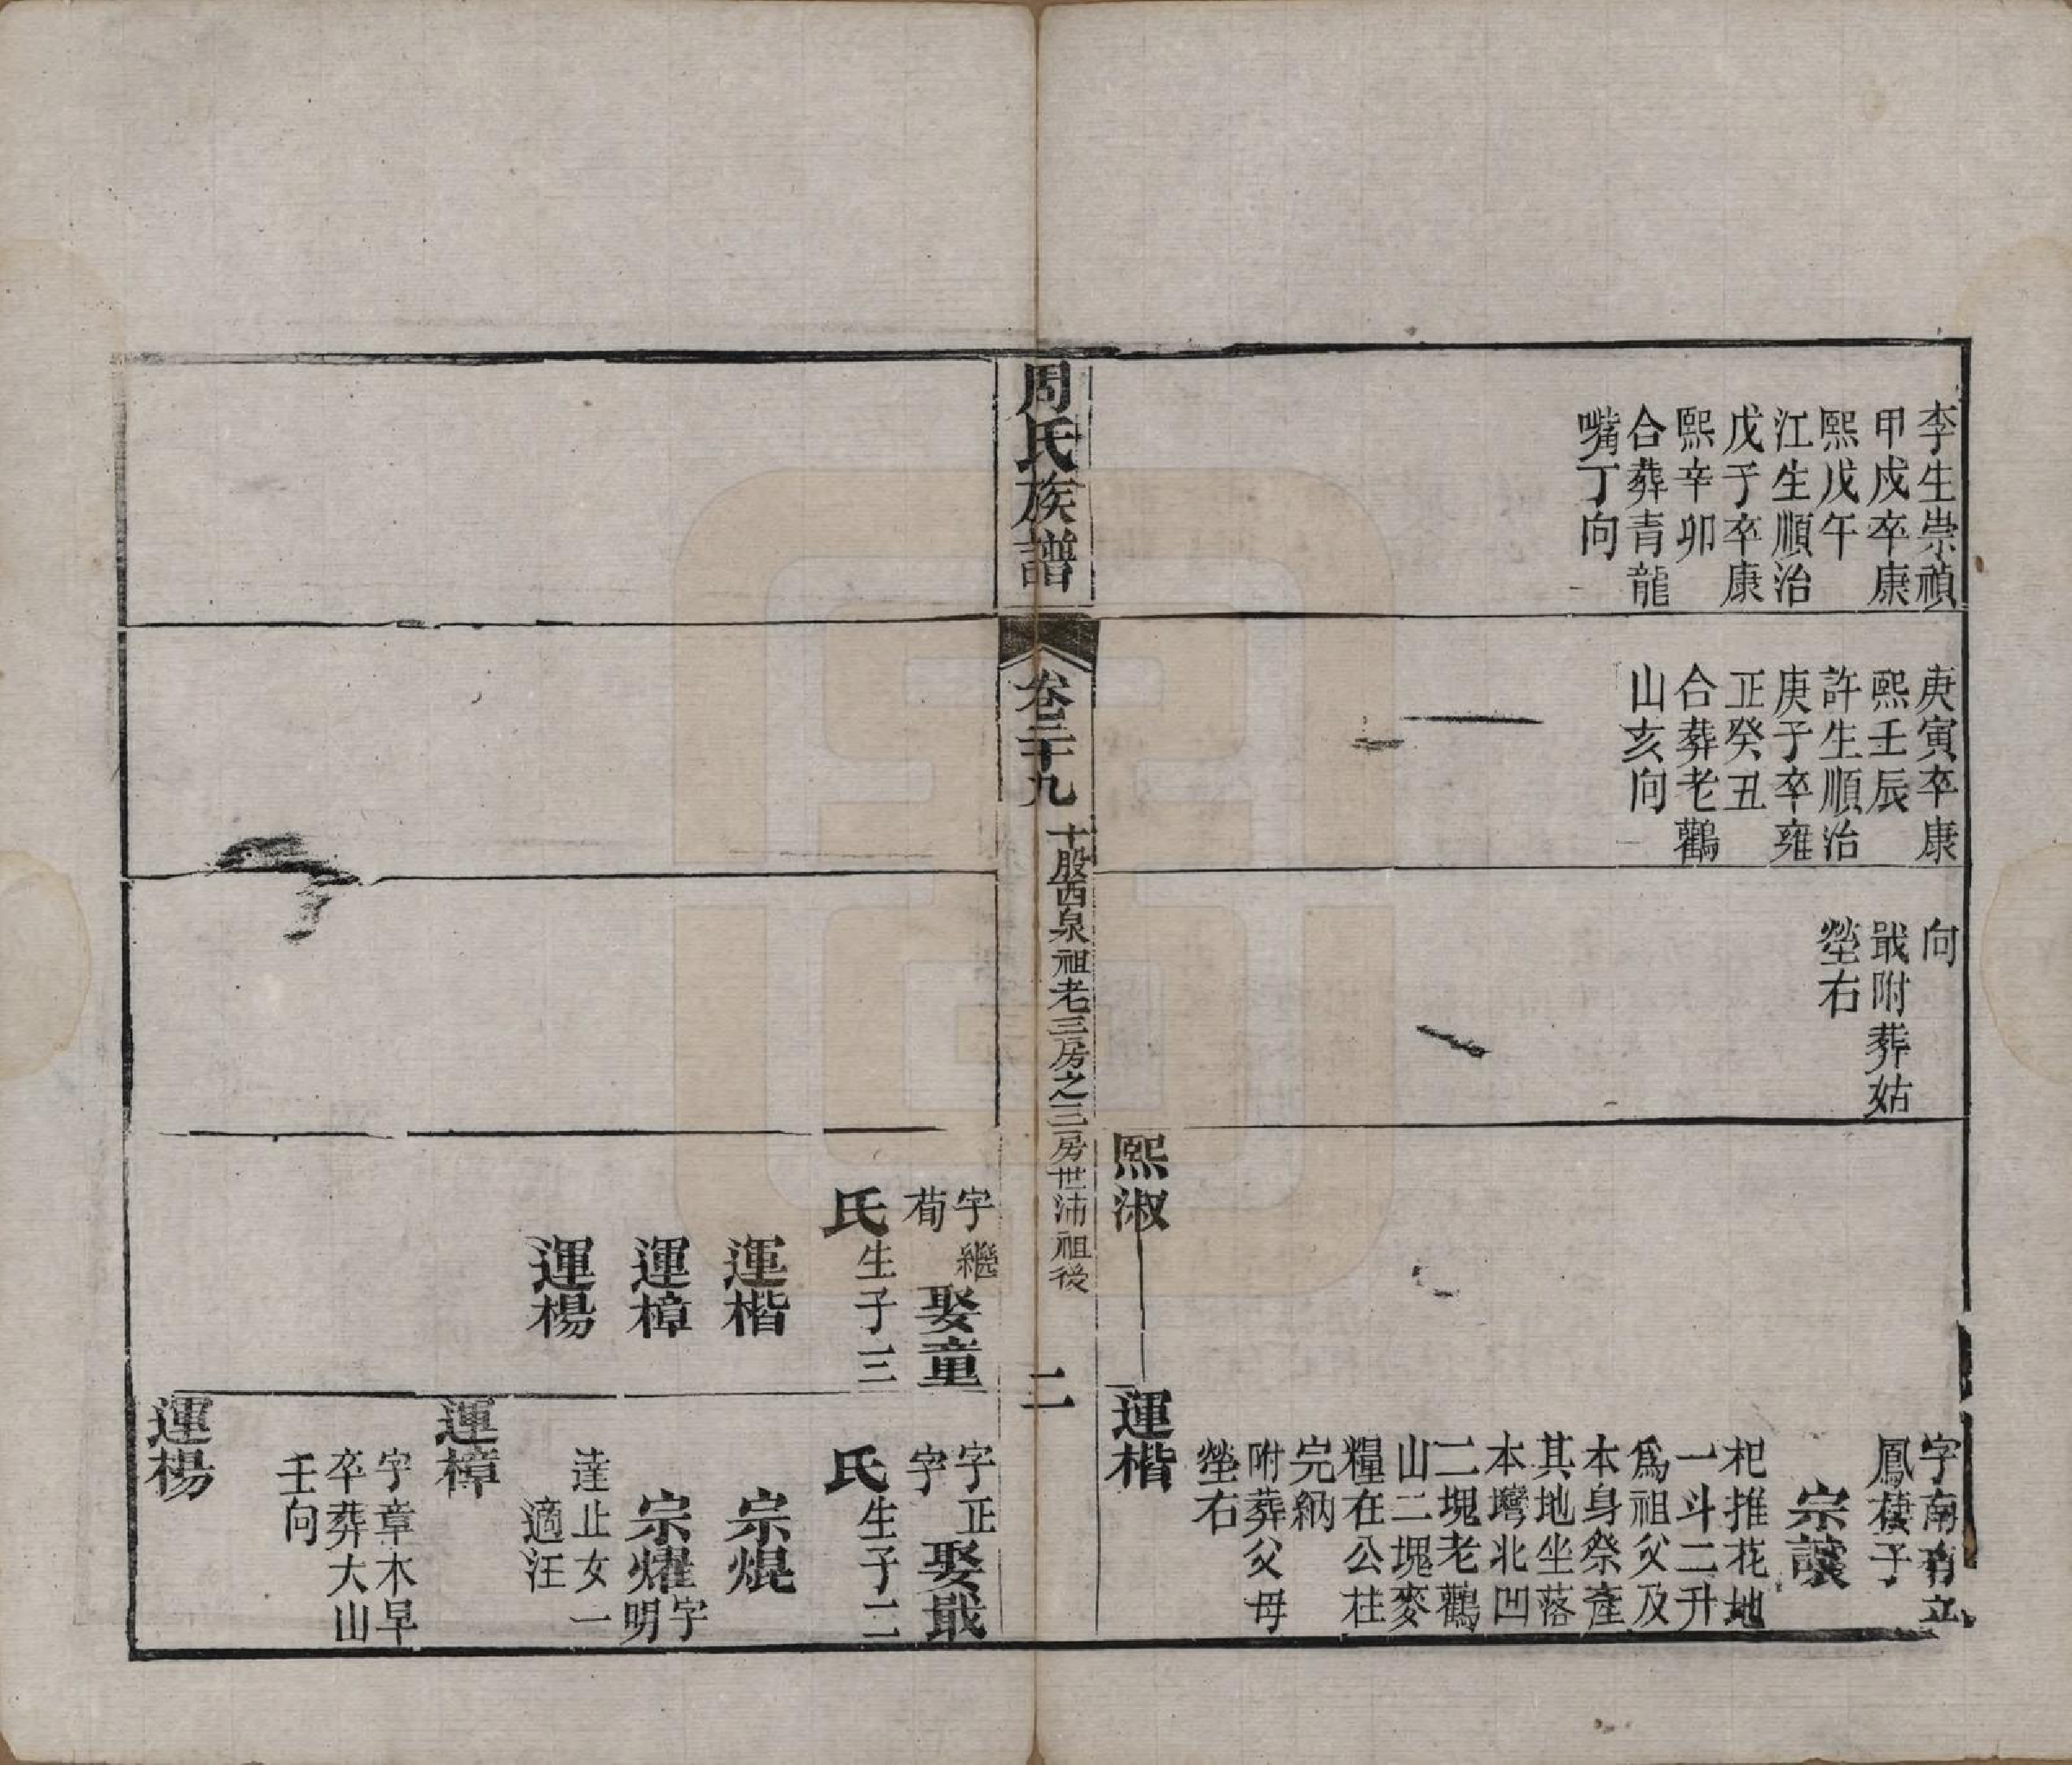 李生崇禎
甲戌卒康
熙戊午
江生順治
戊子卒康
熙辛卯
合葬青龍
嘴丁向
庚寅卒康
熙壬辰
許生順治
庚子卒雍
正癸丑
合葬老鸛
山亥向
向
戢附葬姑
塋右
熙淑
字南有立
鳳棲子
宗讓
杞推花地
一斗二升
爲祖父及
本身祭產
其地坐落
本壪北凹
二塊老鸛
山二塊麥
糧在公柱
完納
附葬父母
塋右
運楷
周氏族譜
卷三十九
十股西泉祖老三房之三房世沛祖後
二
字繼
荀
娶童
氏生子三
運楷
運樟
運楊
字正
字
娶戢
氏生子二
宗焜
宗燿字
明
達止女一
適汪
運樟
字章木早
卒葬大山
壬向
運楊